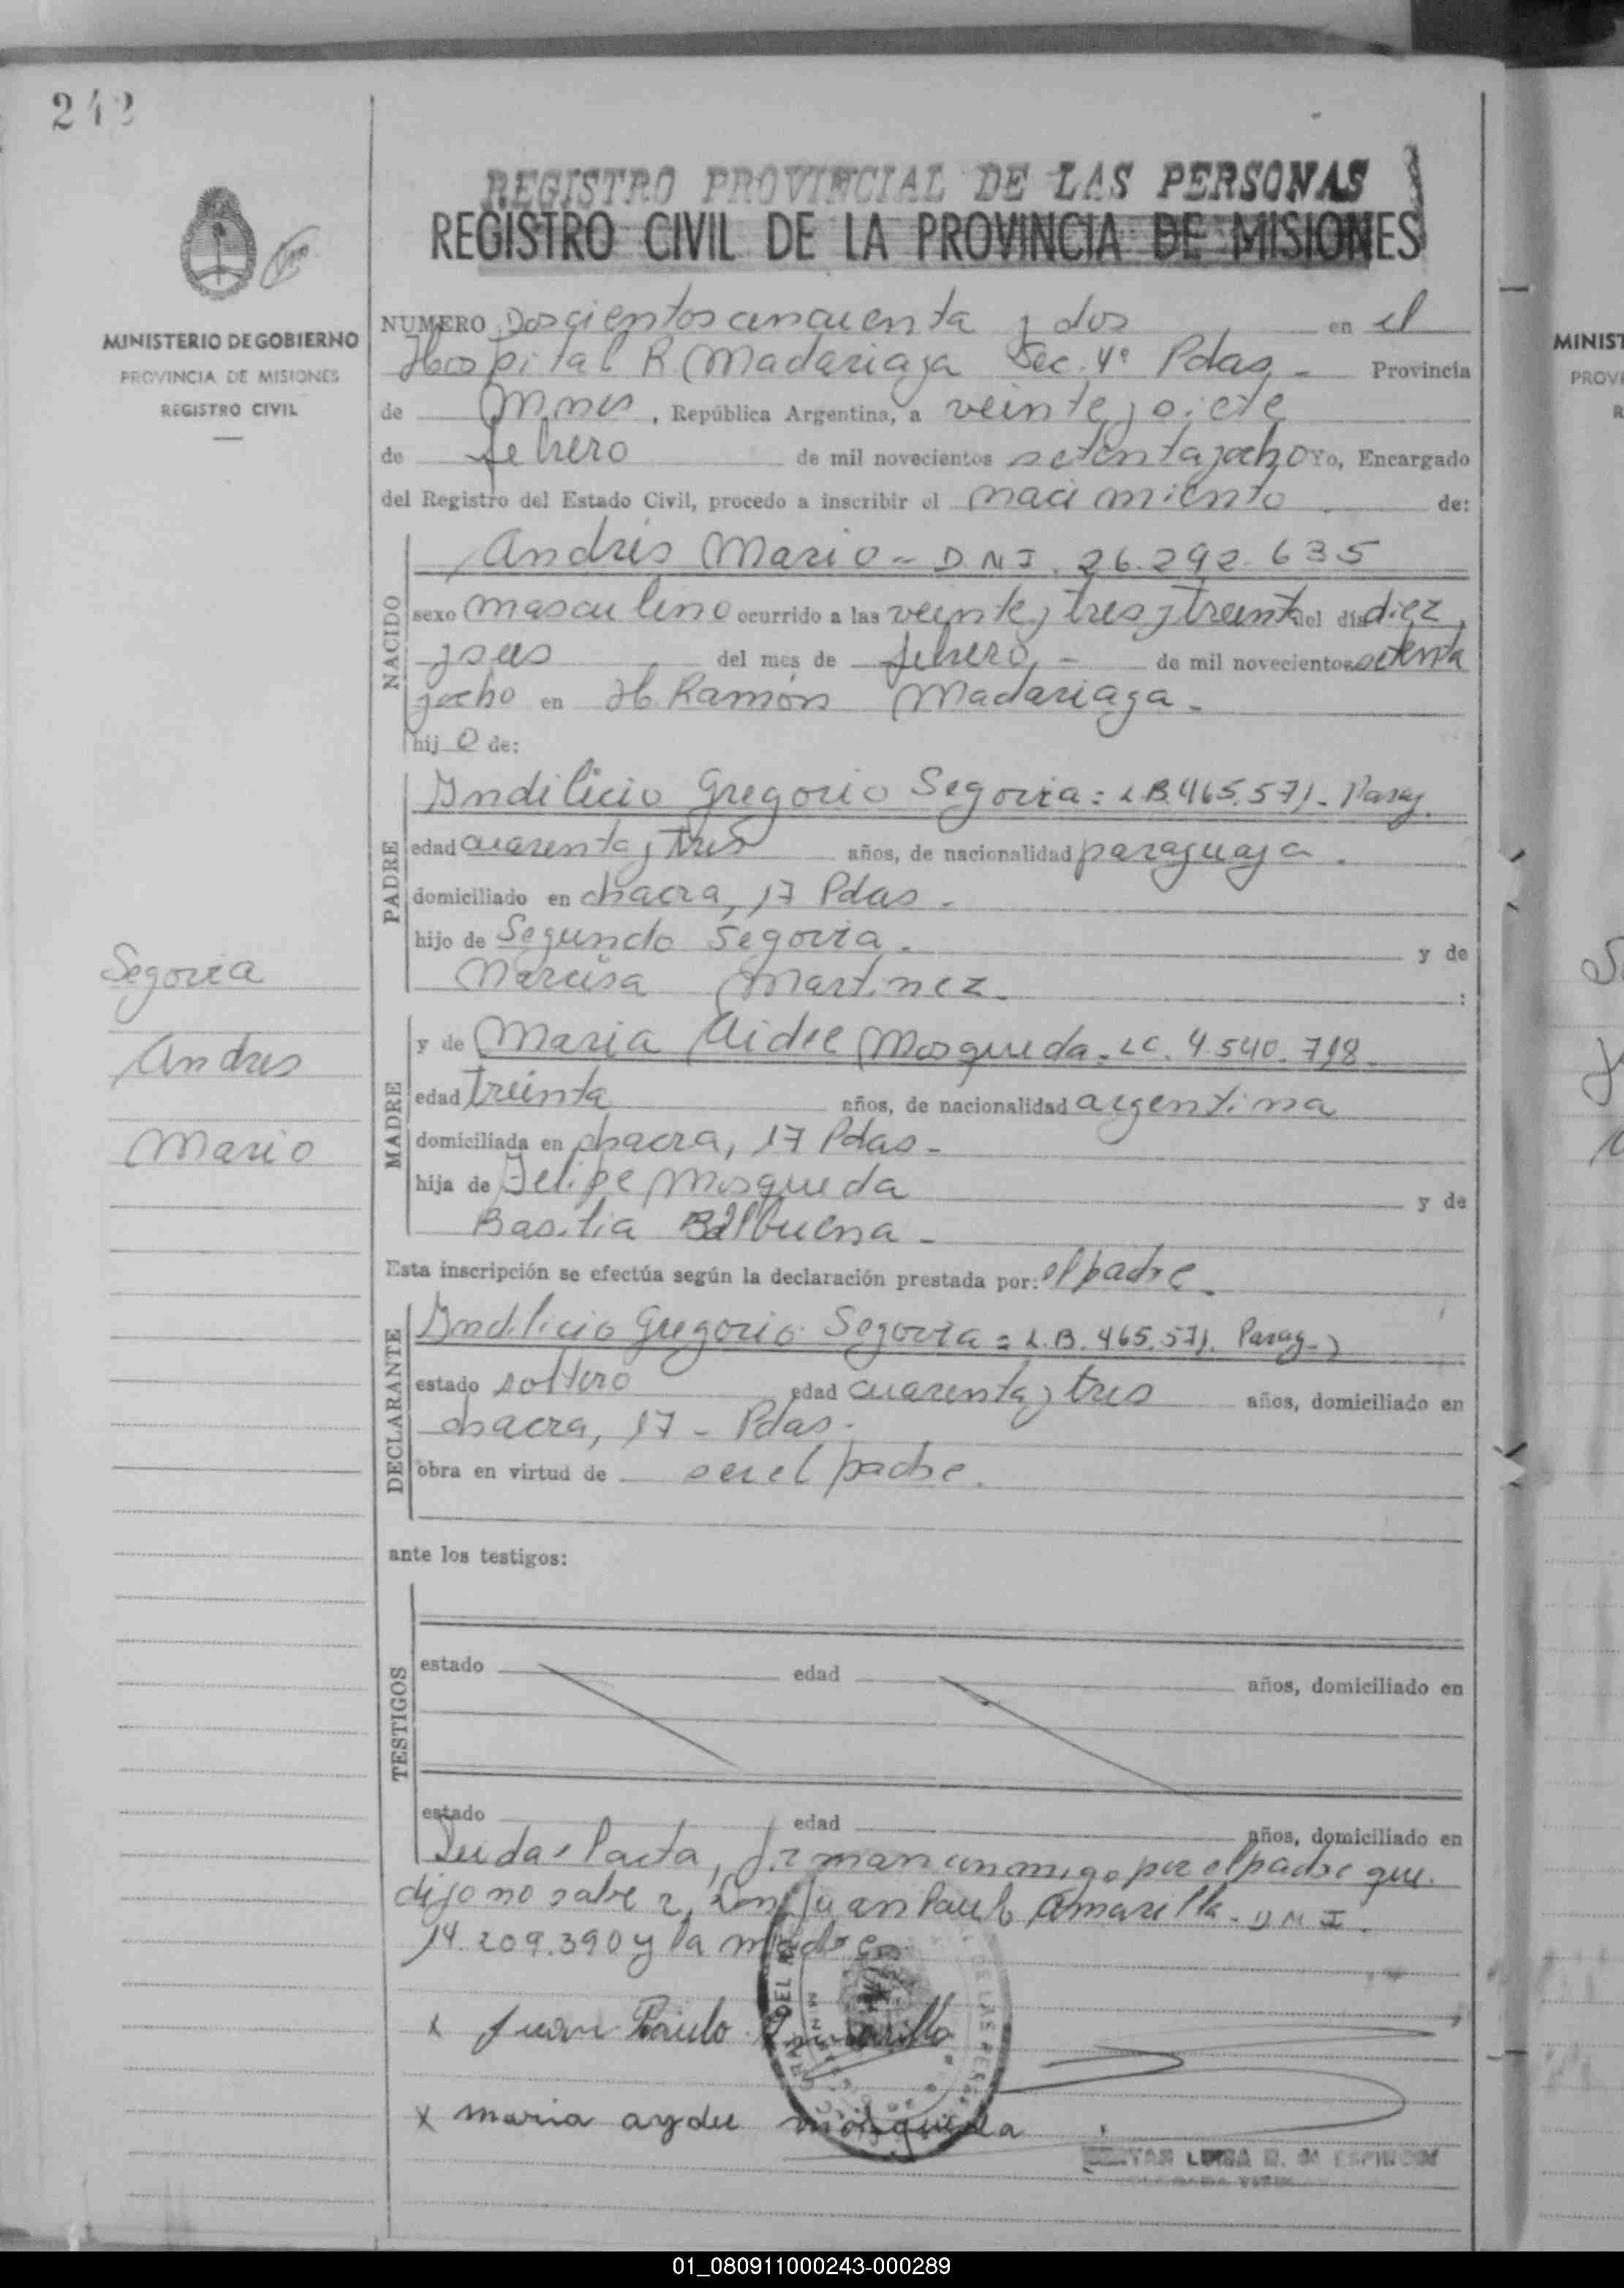 242
REGISTRO PROVINCIAL DE LAS PERSONAS
REGISTRO CIVIL DE LA PROVINCIA DE MISIONES
MINISTERIO DE GOBIERNO
PROVINCIA DE MISIONES
REGISTRO CIVIL
NUMERO Doscientos cincuenta y dos en el
Hospital R Madariaga Sec. 4º Pdas - Provincia
de Mnes, República Argentina, a veinte y siete
de febrero de mil novecientos setenta y ocho Yo, Encargado
del Registro del Estado Civil, procedo a inscribir el nacimiento de:
NACIDO
Andrés Mario - D.N.I. 26.292.635
sexo masculino ocurrido a las veinte y tres y treinta del día diez
y seis del mes de febrero, - de mil novecientos setenta
y ocho en H. Ramón Madariaga -
hijo de:
PADRE
Indilicio Gregorio Segovia: LB. 465.571 - Parag.
edad cuarenta y tres años, de nacionalidad paraguaya.
domiciliado en chacra, 17 Pdas -
hijo de Segundo Segovia. y de
Narcisa Martinez. :
Segovia
Andres
Mario
MADRE
y de Maria Aidee Mosqueda. LC. 4.540.718.
edad treinta años, de nacionalidad argentina
domiciliada en chacra, 17 Pdas -
hija de Felipe Mosqueda y de
Basilia Balbuena -
Esta inscripción se efectúa según la declaración prestada por: el padre.
DECLARANTE
Indilicio Gregorio Segovia = L.B. 465.571. Parag.-
estado soltero edad cuarenta y tres años, domiciliado en
chacra, 17 - Pdas.
obra en virtud de ser el padre.
ante los testigos:
TESTIGOS
estado edad años, domiciliado en
estado edad años, domiciliado en
Leida el acta, firman conmigo por el padre que
dijo no saber, Don Juan Paulo Amarilla - DNI.
14.209.390 y la madre
x Juan Paulo Amarilla
x maria aydee mosqueda
LUISA
01_080911000243-000289